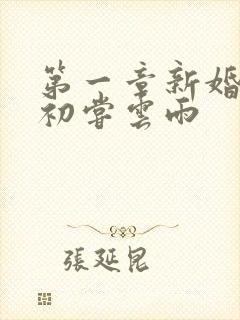 第一章新婚
初嘗雲雨
張延昆